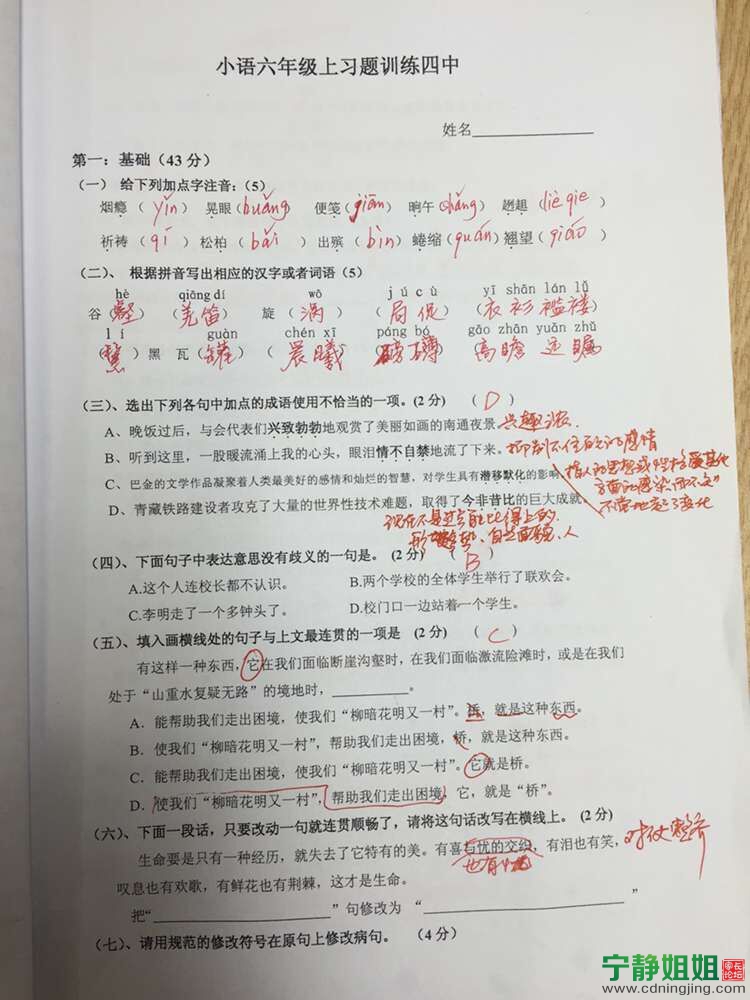 小语六年级上习题训练四中
姓名
第一：基础（43 分）
（一） 给下列加点字注音：（5）
烟瘾（ yǐn ） 晃眼（huǎng） 便笺（jiān） 晌午（shǎng） 趔趄（liè qie）
祈祷（ qí ） 松柏（ bǎi ） 出殡（ bìn ） 蜷缩（quán） 翘望（qiáo）
（二）、 根据拼音写出相应的汉字或者词语（5）
hè qiāng dí wō jú cù yī shān lán lǚ
谷（壑） （羌笛） 旋（涡） （局促） （衣衫褴褛）
lí guàn chén xī páng bó gāo zhān yuǎn zhǔ
（黧）黑 瓦（罐） （晨曦） （磅礴） （高瞻远瞩）
（三）、选出下列各句中加点的成语使用不恰当的一项。（2 分） （ D ）
A、晚饭过后，与会代表们兴致勃勃地观赏了美丽如画的南通夜景 兴趣浓
B、听到这里，一股暖流涌上我的心头，眼泪情不自禁地流了下来。抑制不住自己的感情
C、巴金的文学作品凝聚着人类最美好的感情和灿烂的智慧，对学生具有潜移默化的影响
D、青藏铁路建设者攻克了大量的世界性技术难题，取得了今非昔比的巨大成就
现在不是过去能比得上的
（四）、下面句子中表达意思没有歧义的一句是。（2 分） （ B ）
A.这个人连校长都不认识。 B.两个学校的全体学生举行了联欢会。
C.李明走了一个多钟头了。 D.校门口一边站着一个学生。
（五）、填入画横线处的句子与上文最连贯的一项是 （2 分） （ C ）
有这样一种东西，它在我们面临断崖沟壑时，在我们面临激流险滩时，或是在我们
处于“山重水复疑无路”的境地时，＿＿＿＿＿。
A．能帮助我们走出困境，使我们“柳暗花明又一村”。桥，就是这种东西。
B．使我们“柳暗花明又一村”，帮助我们走出困境，桥，就是这种东西。
C．能帮助我们走出困境，使我们“柳暗花明又一村”。它就是桥。
D．使我们“柳暗花明又一村”，帮助我们走出困境，它，就是“桥”。
（六）、下面一段话，只要改动一句就连贯顺畅了，请将这句话改写在横线上。（2 分）
生命要是只有一种经历，就失去了它特有的美。有喜与忧的交织，有泪也有笑， 对仗整齐
也有
叹息也有欢歌，有鲜花也有荆棘，这才是生命。
把“＿＿＿＿＿＿＿”句修改为 “＿＿＿＿＿＿＿＿”
（七）、请用规范的修改符号在原句上修改病句。 （4 分）
宁静姐姐
家长论坛
www.cdningjing.com